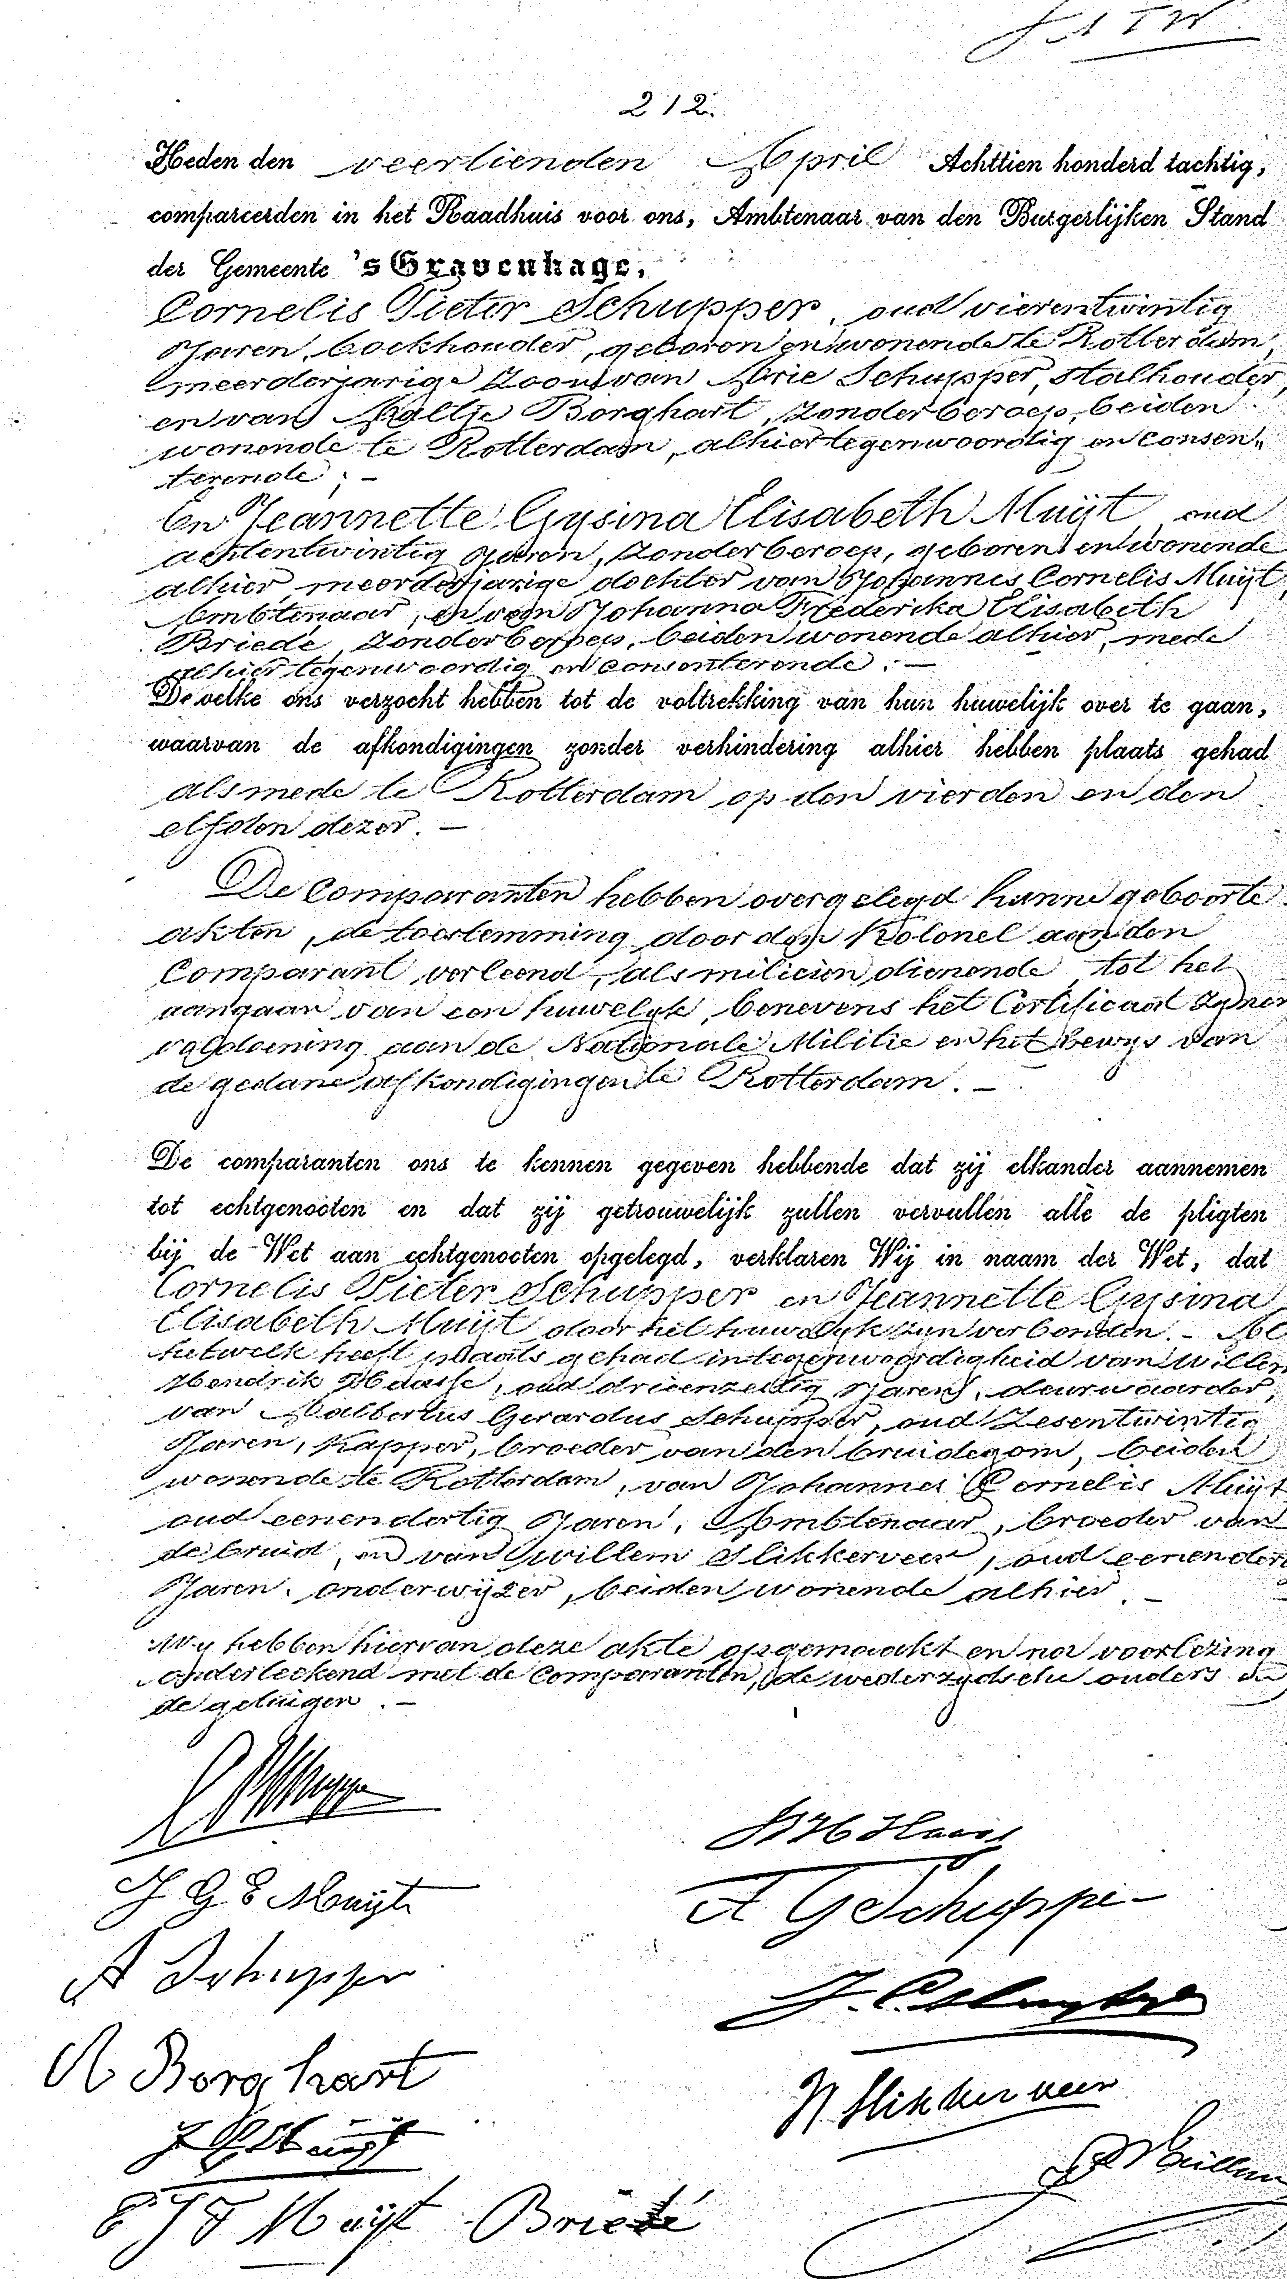 212.
Heden den veertienden April Achttien honderd tachtig,
compareerden in het Raadhuis voor ons, Ambtenaar van den Burgerlijken Stand
der Gemeente 's Gravenhage,
Cornelis Pieter Schupper, oud vierentwintig
Jaren, boekhouder, geboren en wonende te Rotterdam,
meerderjarige Zoon van Arie Schupper, stalhouder,
en van Aaltje Borghart, zonder beroep, beiden
wonende te Rotterdam, alhier tegenwoordig en consen„
terende; —
En Jeannette Gysina Elisabeth Muijt, oud
achtentwintig Jaren, zonder beroep, geboren en wonende
alhier, meerderjarige dochter van Johannes Cornelis Muijt,
Ambtenaar, en van Johanna Frederika Elisabeth
Briedé, zonder beroep, beiden wonende alhier, mede
alhier tegenwoordig en consenterende: —
De welke ons verzocht hebben tot de voltrekking van hun huwelijk over te gaan,
waarvan de afkondigingen zonder verhindering alhier hebben plaats gehad
alsmede te Rotterdam op den vierden en den
elfden dezer. —
De Comparanten hebben overgelegd hunne geboorte
akten, de toestemming door den Kolonel aan den
Comparant verleend, als milicien dienende, tot het
aangaan van een huwelijk, benevens het Certificaat zijner
voldoening aan de Nationale Militie en het bewijs van
de gedane afkondigingen te Rotterdam. —
De comparanten ons te kennen gegeven hebbende dat zij elkander aannemen
tot echtgenooten en dat zij getrouwelijk zullen vervullen alle de pligten
bij de Wet aan echtgenooten opgelegd, verklaren Wij in naam der Wet, dat
Cornelis Pieter Schupper en Jeannette Gysina
Elisabeth Muijt door het huwelijk zijn verbonden. — Al
hetwelk heeft plaats gehad in tegenwoordigheid van Willem
Hendrik Haasse, oud drieenzestig Jaren, deurwaarder,
van Aalbertus Gerardus Schupper, oud Zesentwintig
Jaren, Kapper, broeder van den bruidegom, beiden
wonende te Rotterdam, van Johannes Cornelis Muijt
oud eenendertig Jaren, Ambtenaar, broeder van
de bruid, en van Willem Slikkerveer, oud eenendert
Jaren, onderwijzer, beiden wonende alhier. —
Wij hebben hiervan deze akte opgemaakt en na voorlezing
onderteekend met de Comparanten, de wederzijdsche ouders en
de getuigen. —
C P Schupper
W H Haasse
J G E Muijt
A G Schupper
A Schupper
J. C. Muijt
A Borghart
W Slikkerveer
J C Muijt
E J F Muijt Briedé